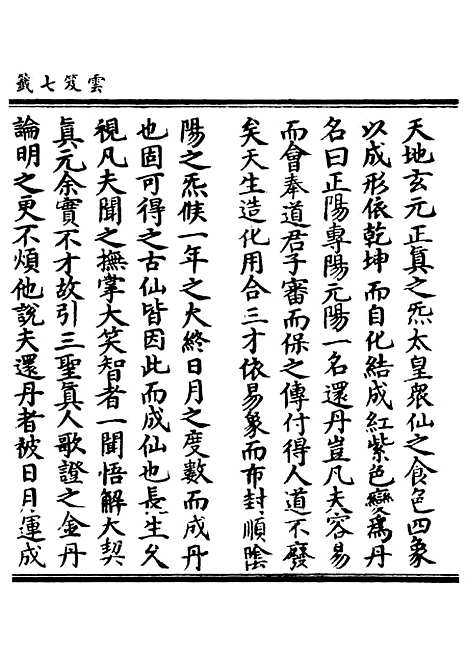 雲笈七籤
天地玄元正真之炁太皇眾仙之食色四象
以成形依乾坤而自化結成紅紫色變為丹
名曰正陽專陽元陽一名還丹豈凡夫容易
而會奉道君子審而保之傳付得人道不廢
矣天生造化用合三才依易象而布封順陰
陽之炁候一年之火終日月之度數而成丹
也固可得之古仙皆因此而成仙也長生久
視凡夫聞之撫掌大笑智者一聞悟解大契
真元余實不才故引三聖真人歌證之金丹
論明之更不煩他說夫還丹者被日月運成